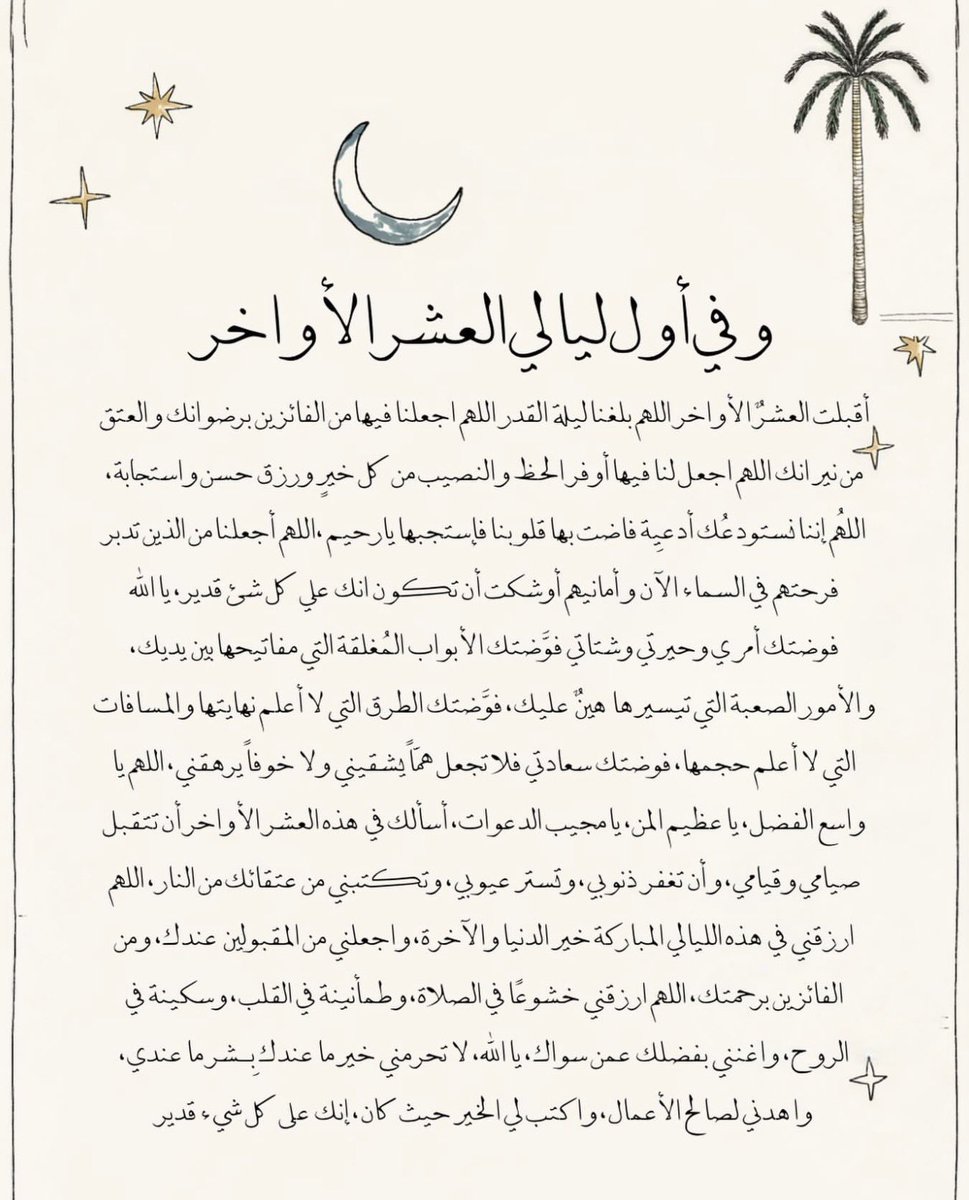 وفي أول ليالي العشر الأواخر
أقبلت العشرٌ الأواخر اللهم بلغنا ليلة القدر اللهم اجعلنا فيها من الفائزين برضوانك والعتق
من نيرانك اللهم اجعل لنا فيها أوفر الحظ والنصيب من كل خيرٍ ورزق حسن واستجابة،
اللهُم إننا نستودعُك أدعيِة فاضت بها قلوبنا فإستجبها يارحيم ،اللهم أجعلنا من الذين تدبر
فرحتهم في السماء الآن وأمانيهم أوشكت أن تكون انك علي كل شئ قدير، يا الله
فوضتك أمري وحيرتي وشتاتي فوَّضتك الأبواب المُغلقة التي مفاتيحها بين يديك،
والأمور الصعبة التي تيسيرها هينٌ عليك، فوَّضتك الطرق التي لا أعلم نهايتها والمسافات
التي لا أعلم حجمها، فوضتك سعادتي فلا تجعل همّاً يشقيني ولا خوفاً يرهقني، اللهم يا
واسع الفضل، يا عظيم المن، يا مجيب الدعوات، أسألك في هذه العشر الأواخر أن تتقبل
صيامي وقيامي، وأن تغفر ذنوبي، وتستر عيوبي، وتكتبني من عتقائك من النار، اللهم
ارزقني في هذه الليالي المباركة خير الدنيا والآخرة، واجعلني من المقبولين عندك، ومن
الفائزين برحمتك، اللهم ارزقني خشوعًا في الصلاة، وطمأنينة في القلب، وسكينة في
الروح، واغنني بفضلك عمن سواك، يا الله، لا تحرمني خير ما عندك بِشر ما عندي،
واهدني لصالح الأعمال، واكتب لي الخير حيث كان، إنك على كل شيء قدير